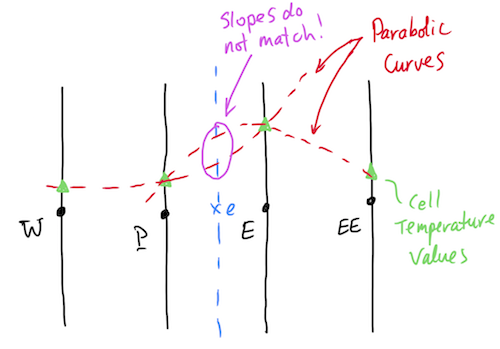 Slopes do
not match!
Parabolic
Curves
W
P
e
E
EE
Cell
Temperature
Values